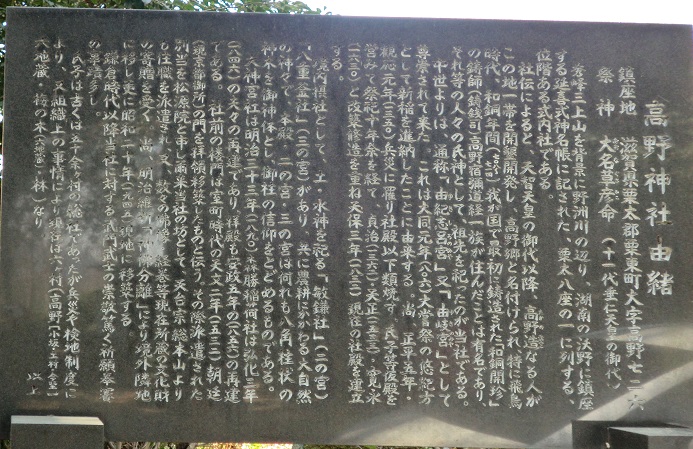 高野神社由緒
鎮座地 滋賀県栗太郡栗東町大字高野七二六
祭神 大名草彦命(十一代垂仁天皇の御代)
秀峰三上山を背景に野洲川の辺り、湖南の沃野に鎮座
する延喜式神名帳に記された、栗太八座の一に列する、
位階ある式内社である。
社伝によると、天智天皇の御代以降、高野造なる人が
この地一帯を開墾開発し、高野郷と名付けられ、特に飛鳥
時代、和銅年間(七〇八)我が国で最初に鋳造された和銅開珍
の鋳師・鋳銭司、高野宿彌道経一族が住んだことは有名であり、
それ等の人々の氏神として、祖先を祀ったのが当社である。
中世よりは、通称「由紀志呂宮」又「由岐宮」として
尊崇されて来た。これは大同元年(八〇六)大嘗祭の悠紀方
として新稲を進納したことに由来する。尚、正平五年・
観応元年(一三五〇)兵災に罹り社殿以下類焼す。氏子等復殿を
営みて祭祀十年余を経て、貞治(一三六二)・天正(一五七三)・寛永
(一六三〇)と改築修造を重ね天保二年(一八三一)現在の社殿を建立
する。
境内摂社として、土・水神を祀る「敏鎌社」(二の宮)
「八重釜社」(三の宮)があり、共に農耕にかかわる大自然
の神々で、本殿、二の宮・三の宮は何れも八角柱状の
神木を御神体とし、御柱の信仰をとどめるものである。
大神宮社は明治三十三年(一九〇〇)森勝稲荷社は弘化三年
(一八四六)の夫々の再建であり、拝殿は安政五年の(一八五八)の再建
である。社前の楼門は室町時代の天文二年(一五三三)朝廷
(現京都御所)の門を拝領移築したものと伝う。その際派遣された
別当を松源院と申し爾来当社の坊として、天台宗総本山より
も住職を派遣され又、数々の仏像・経巻等現在所蔵の文化財
の寄贈を受く。尚、明治維新の神仏分離により境外隣地
に移し更に昭和二十年(一九四五)現地に移築する。
鎌倉時代以降当社に対する武門武士の崇敬も篤く祈願奉賽
の事蹟多し。
氏子は古くは五十余ヶ村の総社であったが兵災や検地制度に
より、又組織上の事情により現在は六ヶ村(高野(小坂・工村・今里)
(地蔵・梅の木(六地蔵)・林)なり
以上